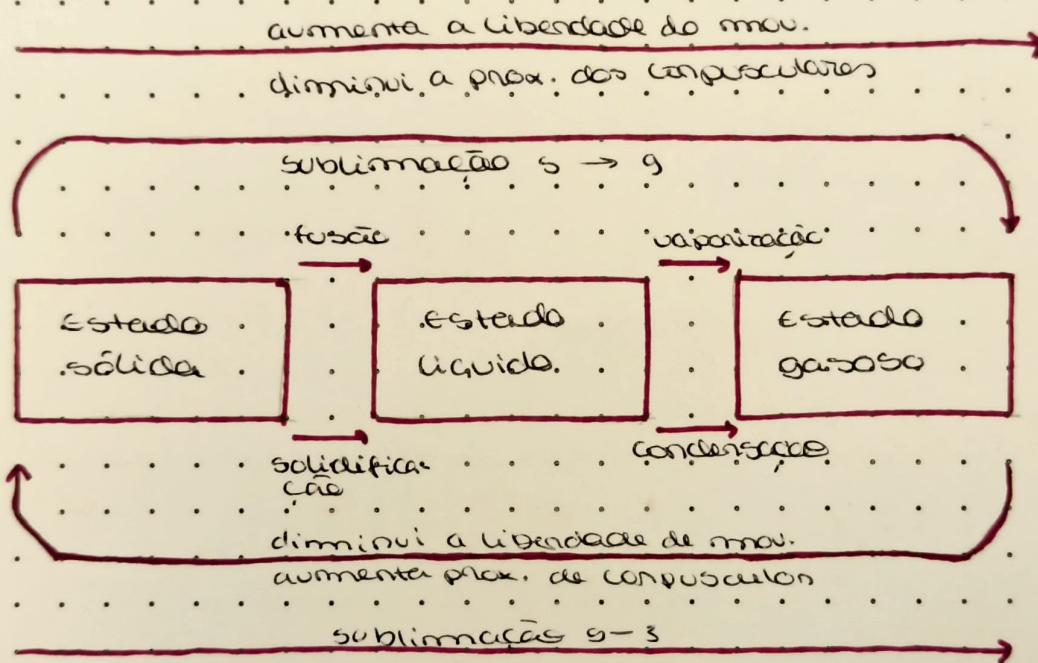 aumenta a liberdade do mov.
diminui a prox. dos corpusculares
sublimação s → g
fusão
vaporização
Estado
sólida
Estado
líquido.
Estado
gasoso
solidifica-
ção
condensação
diminui a liberdade de mov.
aumenta prox. de corpusculos
sublimação